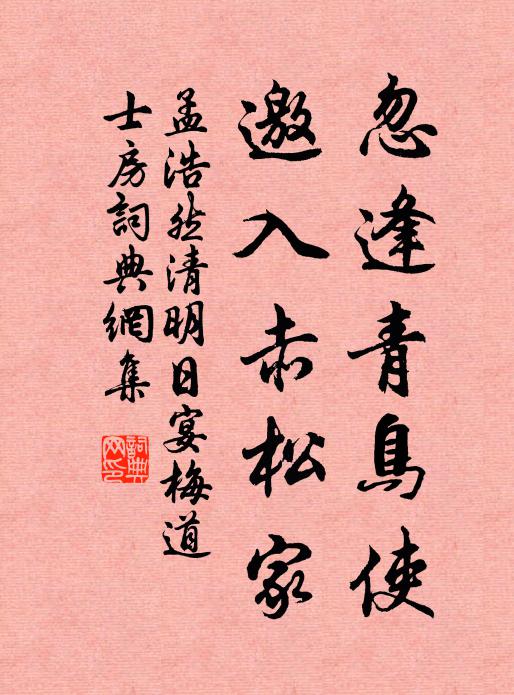 忽逢青鳥使
邀入赤松家
孟浩然清明日宴梅道
士房詞典網集
詞典
网印